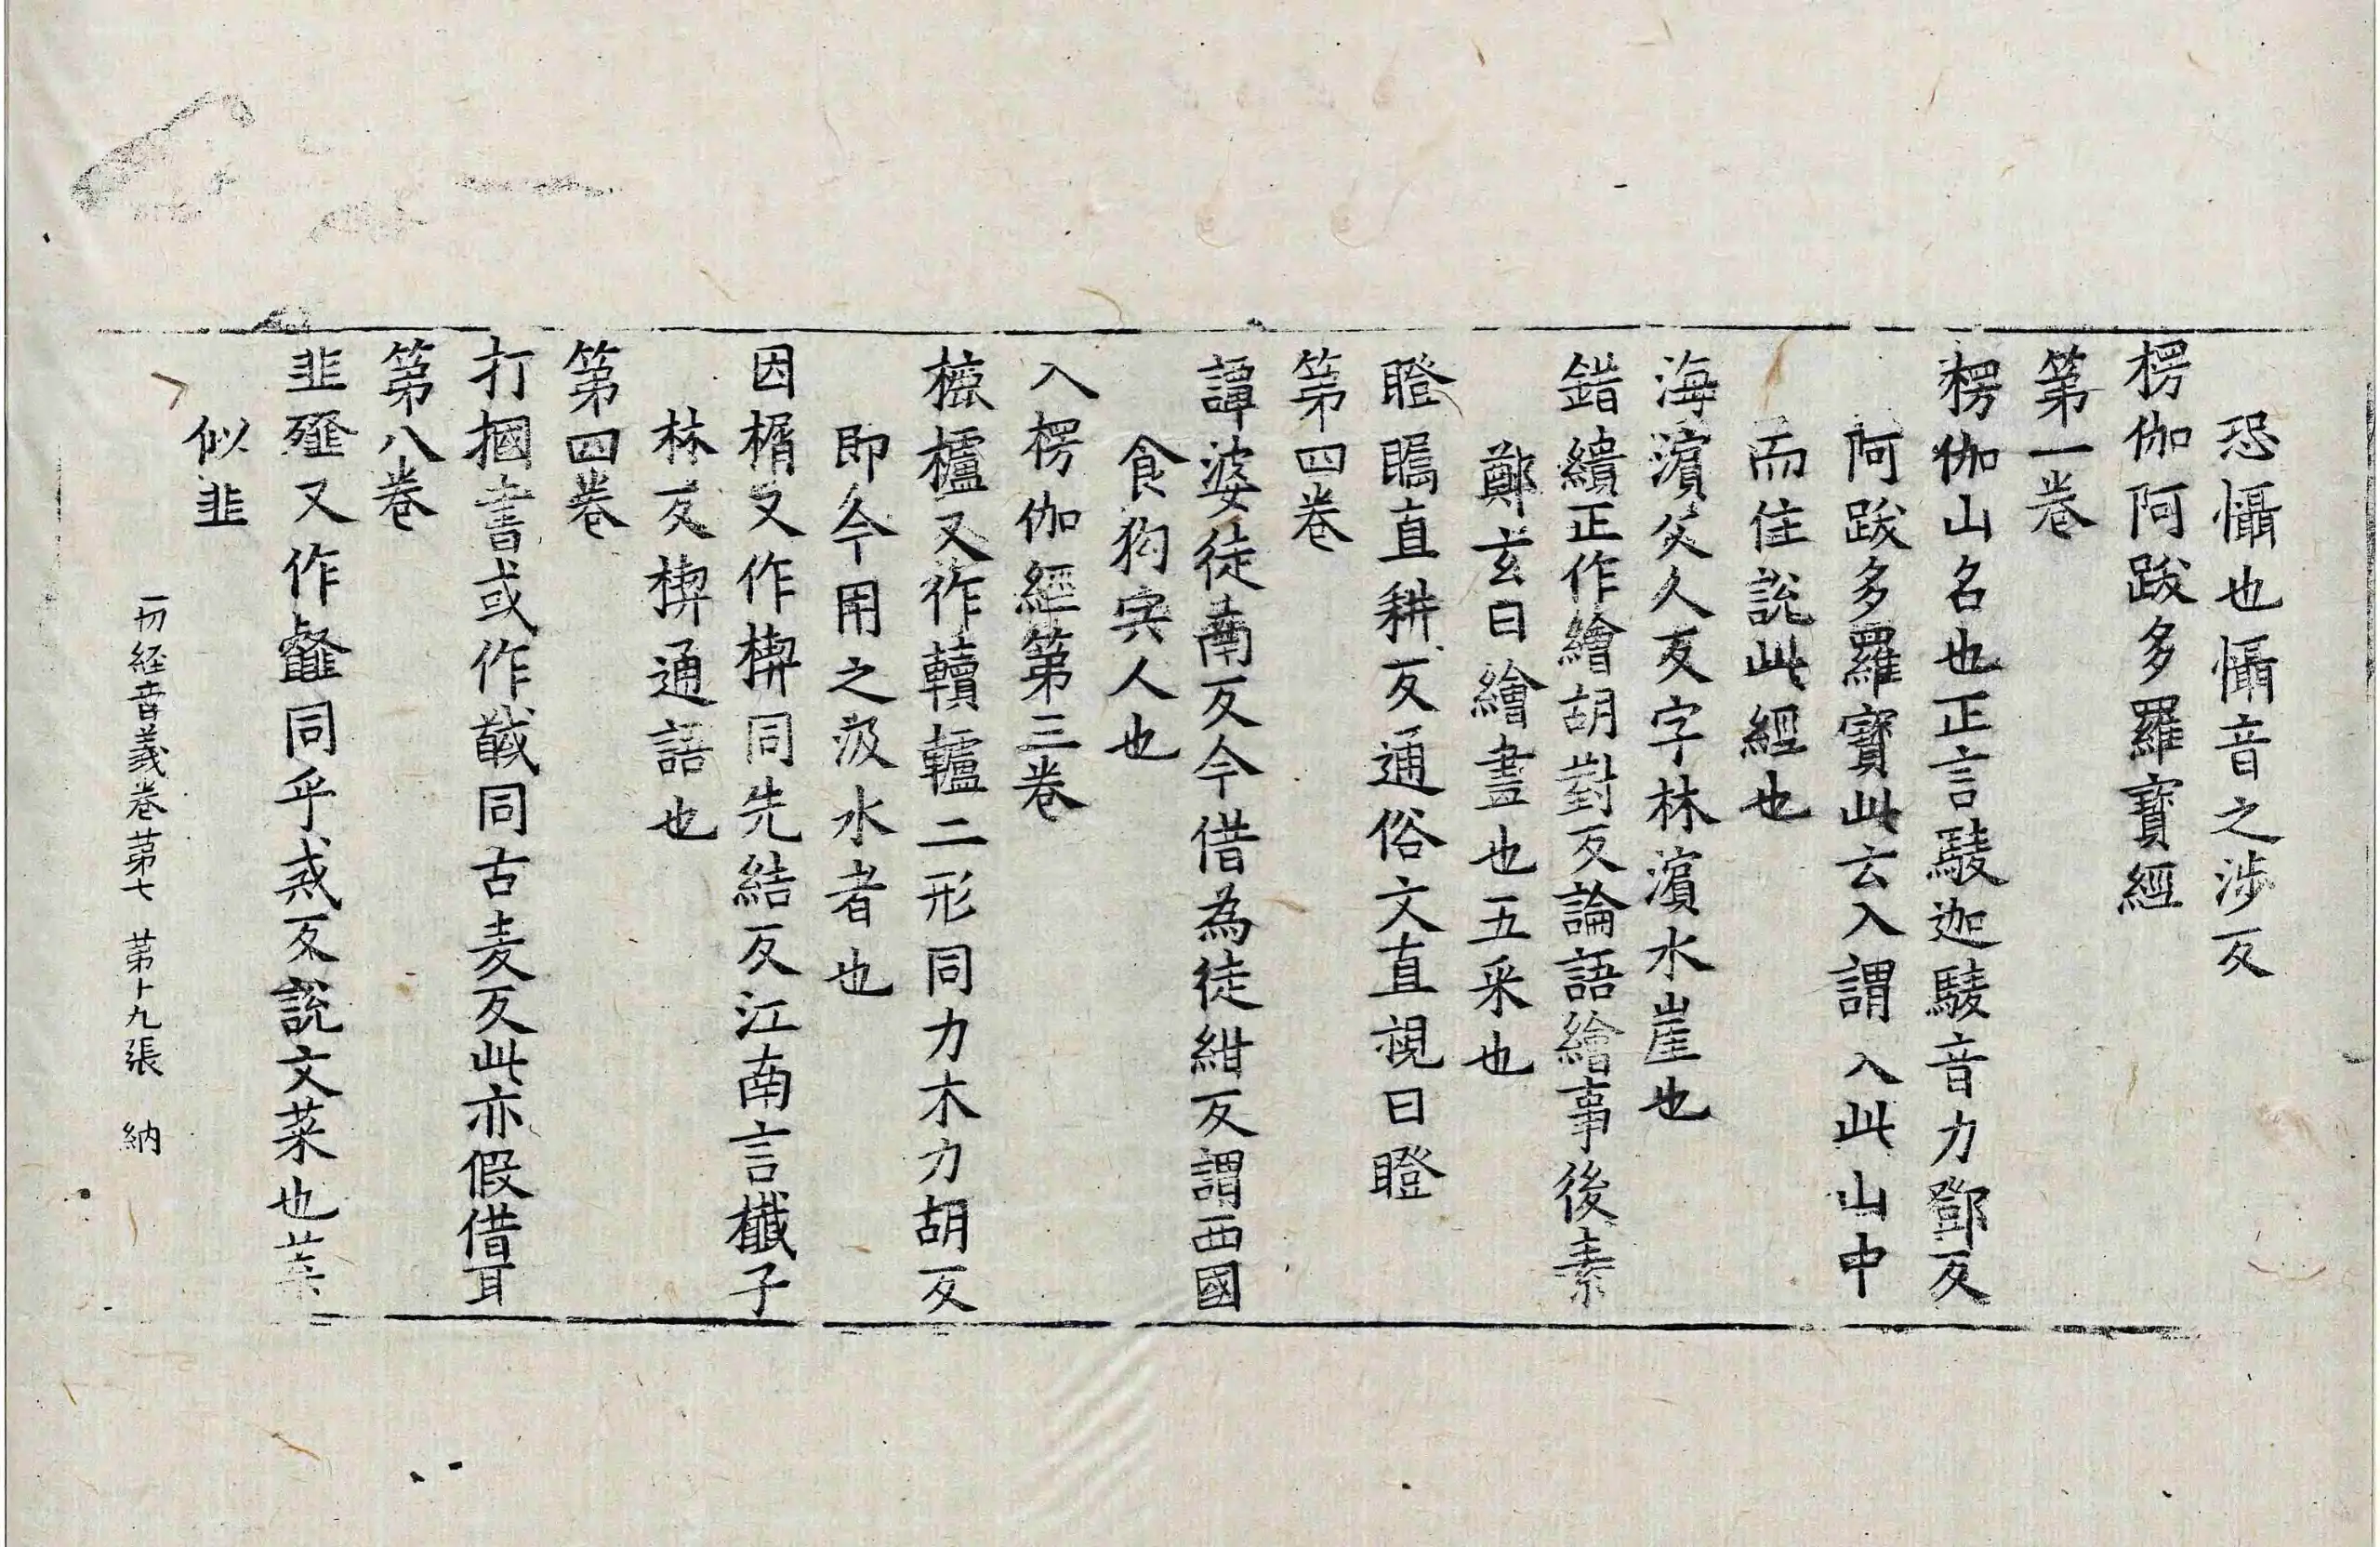 恐懾也懾音之涉反
楞伽阿跋多羅寶經
第一卷
楞伽山名也正言䮚迦䮚音力鄧反
阿跋多羅寶此云入謂入此山中
而住說此經也
海濵父人反字林濵水崖也
錯繢正作繪胡對反論語繪事後素
鄭玄曰繪畫也五采也
瞪矚直耕反通俗文直視曰瞪
第四卷
譚婆徒南反今借為徒紺反謂西國
食狗宍人也
入楞伽經第三卷
櫎櫨又作轒轤二形同力木力胡反
即今用之汲水者也
因楯又作楔同先結反江南言櫼子
林反楔通語也
第四卷
打摑書或作㦽同古麦反此亦假借耳
第八卷
韭䪥又作䪤同乎戒反說文菜也葉
似韭
一切経音義卷第七 第十九張 納